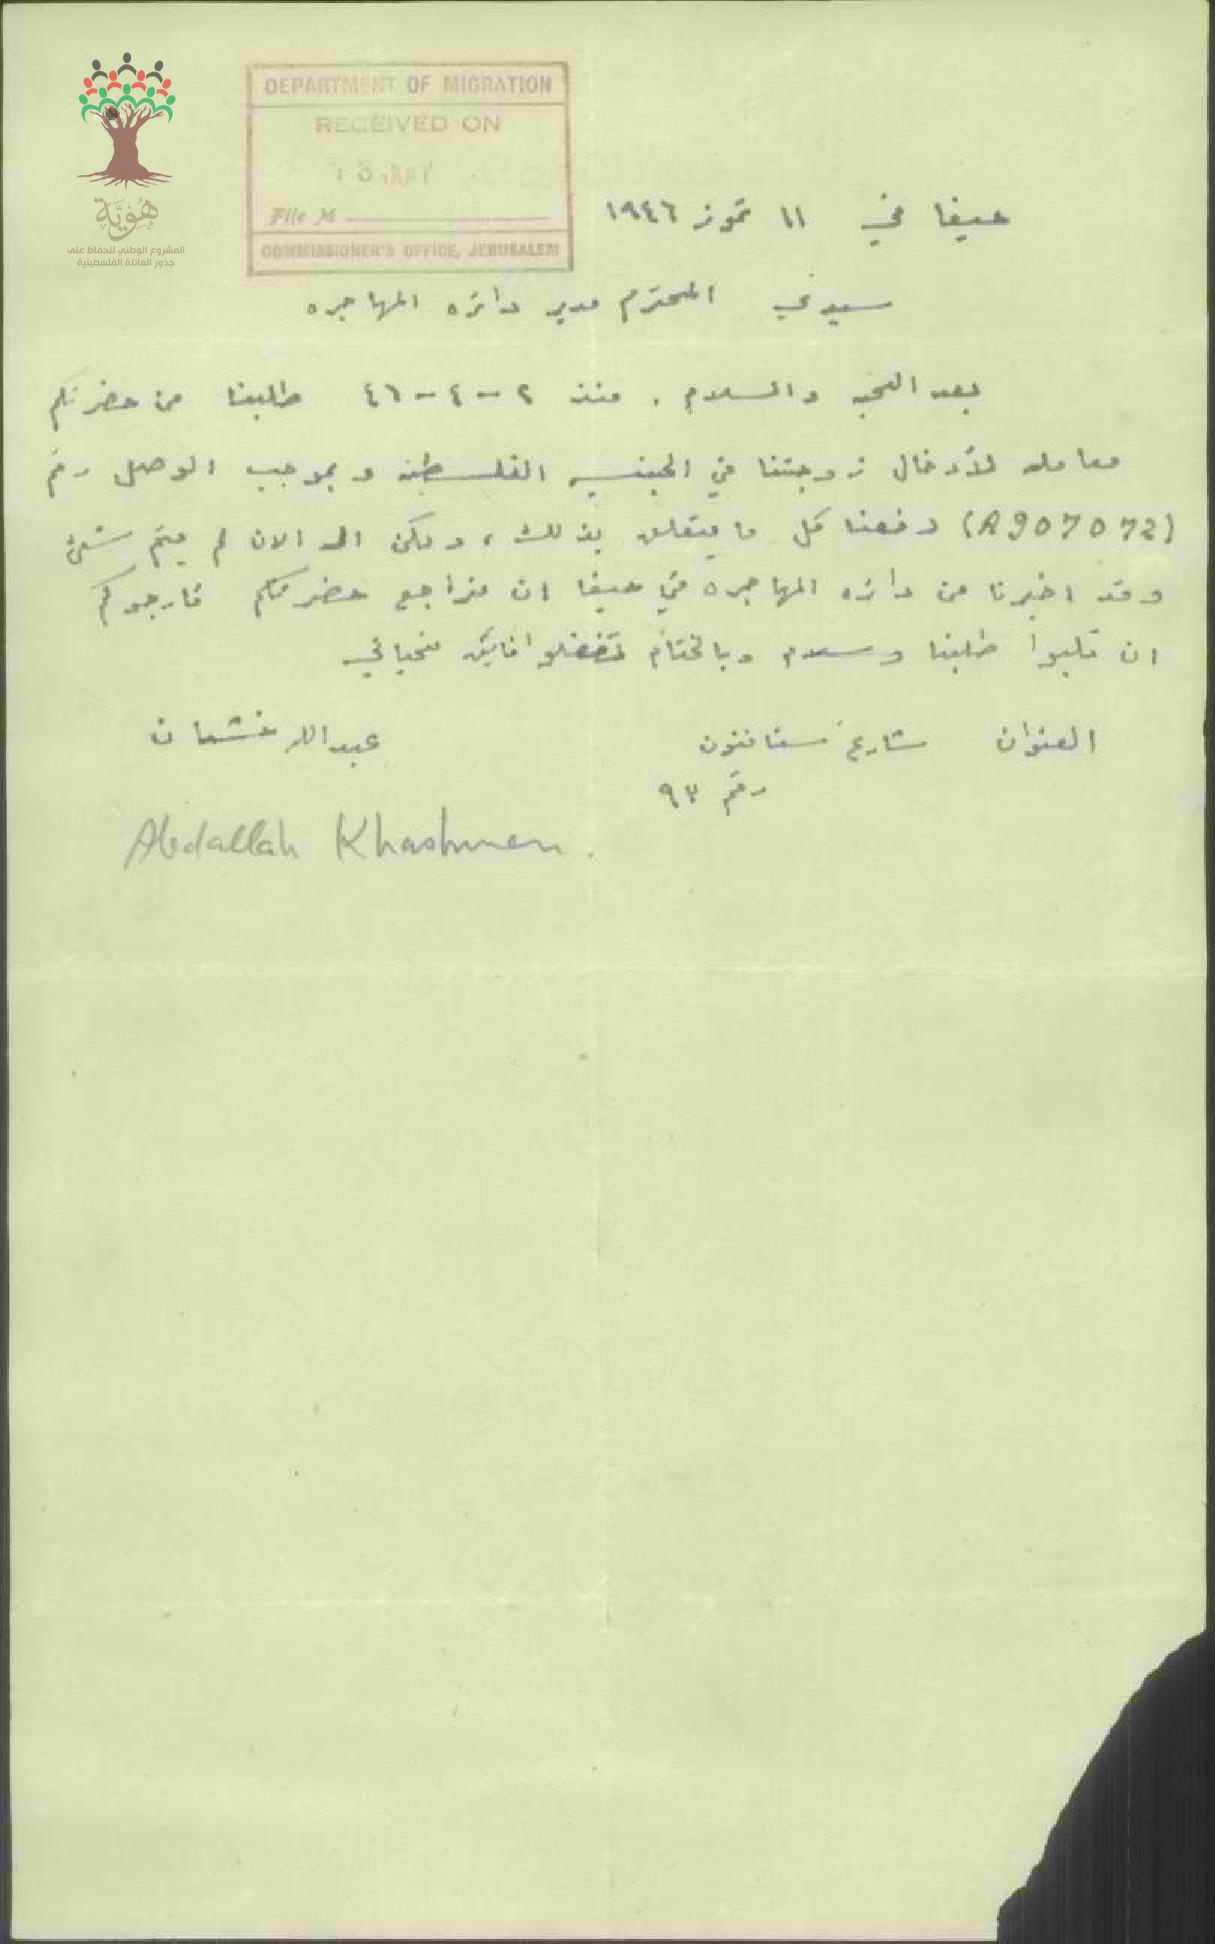 هُوِيَّة
المشروع الوطني للحفاظ على
جذور العائلة الفلسطينية
DEPARTMENT OF MIGRATION
RECEIVED ON
13
File M
COMMISSIONER'S OFFICE, JERUSALEM
حيفا في ١١ تموز ١٩٤٦
سيدي المحترم مدير دائره المهاجره
بعد التحيه والسلام . منذ ٢ - ٤ - ٤٦ طلبنا من حضرتكم
معامله لأدخال زوجتنا في الجنسيه الفلسطينه وبموجب الوصل رقم
(A907072) دفعنا كل ما يتعلق بذلك ، ولكن الى الان لم يتم شئ
وقد اخبرنا من دائره المهاجره في حيفا ان نراجع حضرتكم فارجوكم
ان تلبوا طلبنا وسلام وبالختام تفضلوا فايق تحياتي
العنوان شارع ستانتون عبدالله خشمان
رقم ٩٣
Abdallah Khashman.